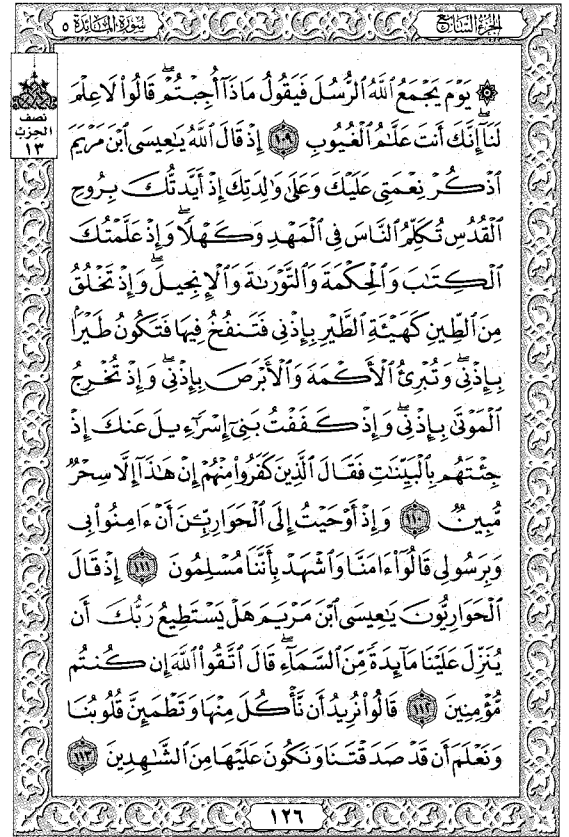 الجزء السابع
سورة المائدة ٥
نصف
الحزب
١٣
۞ يَوْمَ يَجْمَعُ ٱللَّهُ ٱلرُّسُلَ فَيَقُولُ مَاذَآ أُجِبْتُمْ ۖ قَالُوا۟ لَا عِلْمَ
لَنَآ ۖ إِنَّكَ أَنتَ عَلَّٰمُ ٱلْغُيُوبِ ١٠٩ إِذْ قَالَ ٱللَّهُ يَٰعِيسَى ٱبْنَ مَرْيَمَ
ٱذْكُرْ نِعْمَتِى عَلَيْكَ وَعَلَىٰ وَٰلِدَتِكَ إِذْ أَيَّدتُّكَ بِرُوحِ
ٱلْقُدُسِ تُكَلِّمُ ٱلنَّاسَ فِى ٱلْمَهْدِ وَكَهْلًا ۖ وَإِذْ عَلَّمْتُكَ
ٱلْكِتَٰبَ وَٱلْحِكْمَةَ وَٱلتَّوْرَىٰةَ وَٱلْإِنجِيلَ ۖ وَإِذْ تَخْلُقُ
مِنَ ٱلطِّينِ كَهَيْـَٔةِ ٱلطَّيْرِ بِإِذْنِى فَتَنفُخُ فِيهَا فَتَكُونُ طَيْرًۢا
بِإِذْنِى ۖ وَتُبْرِئُ ٱلْأَكْمَهَ وَٱلْأَبْرَصَ بِإِذْنِى ۖ وَإِذْ تُخْرِجُ
ٱلْمَوْتَىٰ بِإِذْنِى ۖ وَإِذْ كَفَفْتُ بَنِىٓ إِسْرَٰٓءِيلَ عَنكَ إِذْ
جِئْتَهُم بِٱلْبَيِّنَٰتِ فَقَالَ ٱلَّذِينَ كَفَرُوا۟ مِنْهُمْ إِنْ هَٰذَآ إِلَّا سِحْرٌ
مُّبِينٌ ١١٠ وَإِذْ أَوْحَيْتُ إِلَى ٱلْحَوَارِيِّۦنَ أَنْ ءَامِنُوا۟ بِى
وَبِرَسُولِى قَالُوٓا۟ ءَامَنَّا وَٱشْهَدْ بِأَنَّنَا مُسْلِمُونَ ١١١ إِذْ قَالَ
ٱلْحَوَارِيُّونَ يَٰعِيسَى ٱبْنَ مَرْيَمَ هَلْ يَسْتَطِيعُ رَبُّكَ أَن
يُنَزِّلَ عَلَيْنَا مَآئِدَةً مِّنَ ٱلسَّمَآءِ ۖ قَالَ ٱتَّقُوا۟ ٱللَّهَ إِن كُنتُم
مُّؤْمِنِينَ ١١٢ قَالُوا۟ نُرِيدُ أَن نَّأْكُلَ مِنْهَا وَتَطْمَئِنَّ قُلُوبُنَا
وَنَعْلَمَ أَن قَدْ صَدَقْتَنَا وَنَكُونَ عَلَيْهَا مِنَ ٱلشَّٰهِدِينَ ١١٣
١٢٦